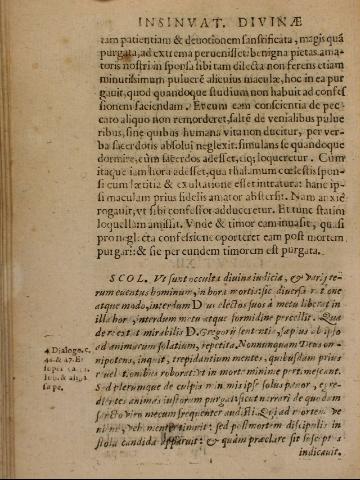 INSINVAT. DIVINÆ
tam patientiam & deuotionem sanctificata, magis quā
purgata, ad extrema peruenisset: benigna pietas ama-
toris nostri in sponsa sibi tam dilecta non ferens etiam
minutissimum puluerē alicuius maculæ, hoc in ea pur
gauit, quod quandoque studium non habuit ad confes
sionem faciendam. Et cum eam conscientia de pec-
cato aliquo non remorderet, saltē de venialibus pulue
ribus, sine quibus humana vita non ducitur, per ver-
ba sacerdotis absolui neglexit: simulans se quandoque
dormire, cùm sacerdos adesset, eiq; loqueretur. Cùm
itaque iam hora adesset, qua thalamum cœlestis spon-
si cum lætitia & exultatione esset intratura: hanc ip-
si maculam prius fidelis amator abstersit. Nam anxiè
rogauit, vt sibi confessor adduceretur. Et tunc statim
loquelam amisit. Vnde & timor eam inuasit, quasi
pro neglecta confessione oporteret eam post mortem
purgari: & sic per eundem timorem est purgata.
SCOL. Vt sunt occulta diuina iudicia, & varij te-
rum euentus hominum, in hora mortis: sic diuersi
atque modo, interdum Deus electos suos à metu liberat in
illa hora, interdum metu atque formidine præcellit. Qua
de re extat mirabilis D. Gregorij sententia, sæpius ab ipso
ad animarum solatium, repetita. Nonnunquam Deus om-
nipotens, inquit, trepidantium mentes, quibusdam prius
reuelationibus roborat: vt in morte minimè pertimescant.
Sed plerunque de culpis minimis ipse solus pauor, egre-
dientes animas iustorum purgat: sicut narrari de quodam
sancto viro mecum frequenter audisti. Qui ad mortem ve
niens, vehementer timuit: sed post mortem discipulis in
stola candida apparuit: & quàm præclare sit susceptus
indicauit.
4 Dialogo. c.
46. & 47. Et
super
Iob: & alias
sæpe.